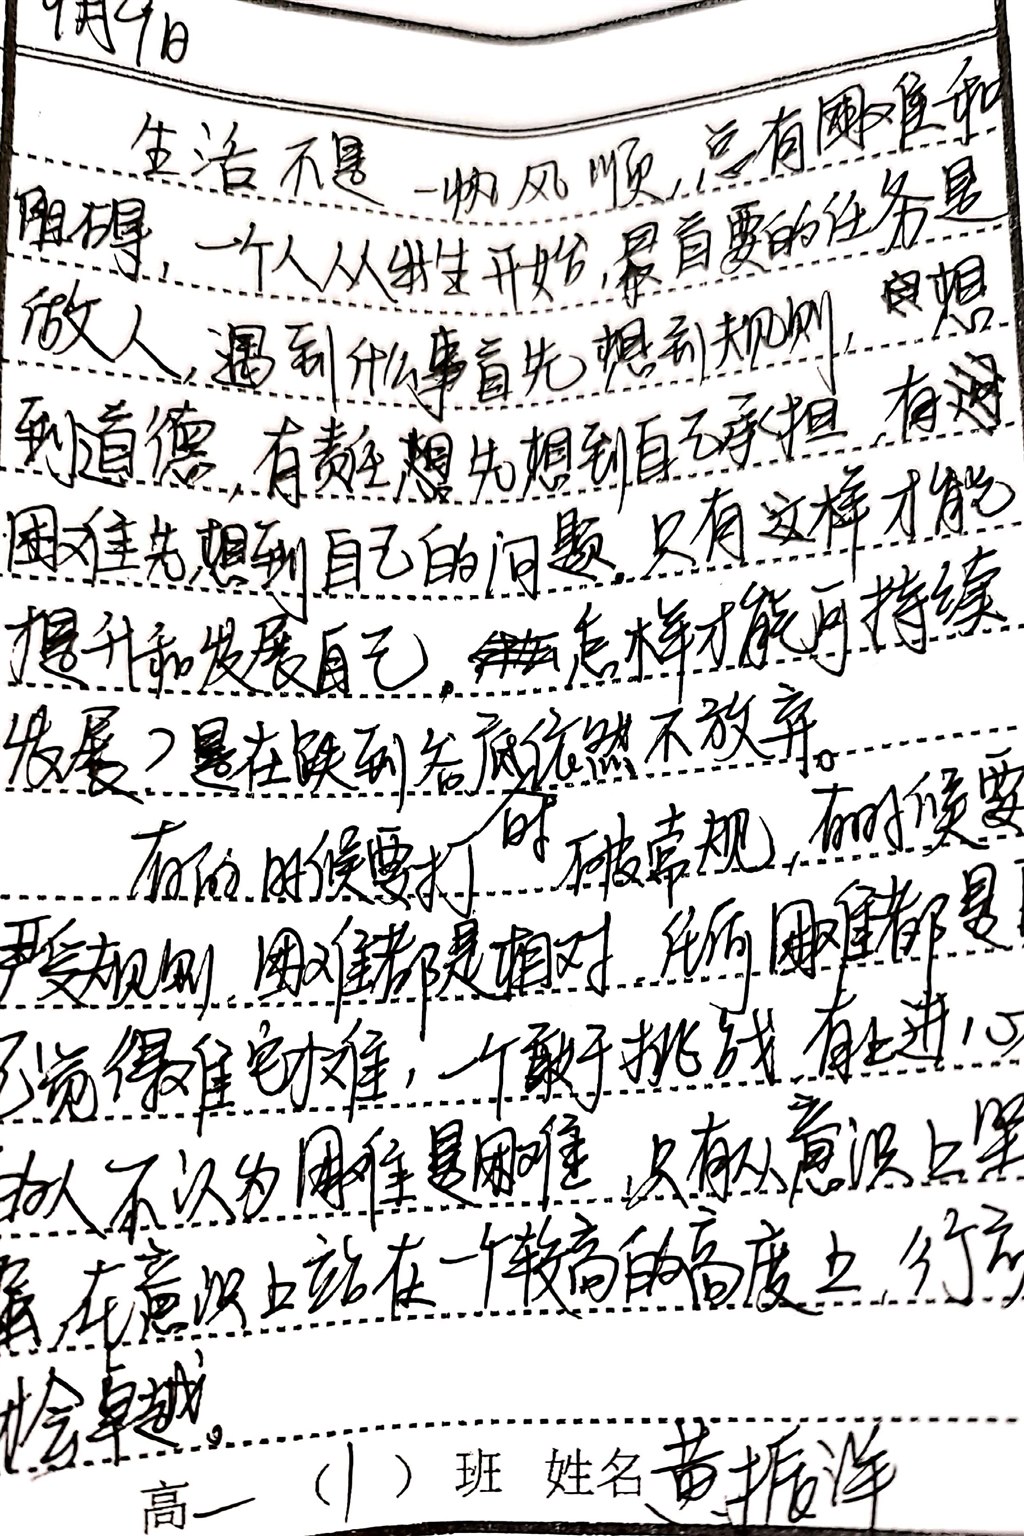 9月9日
生活不是一帆风顺,总有困难和
阻碍,一个人从出生开始,最首要的任务是
做人,遇到什么事首先想到规则,想
到道德,有责任想先想到自己承担,有
困难先想到自己的问题,只有这样才能
提升和发展自己。怎样才能可持续
发展?是在跌到谷底依然不放弃。
有的时候要打破常规,有时候要
严受规则,困难都是相对,任何困难都是
觉得难它才难,一个敢于挑战,有上进心
的人不认为困难是困难,只有从意识上坚
在意识上站在一个较高的高度上,行动
才会卓越。
高一 (1) 班 姓名 黄振洋